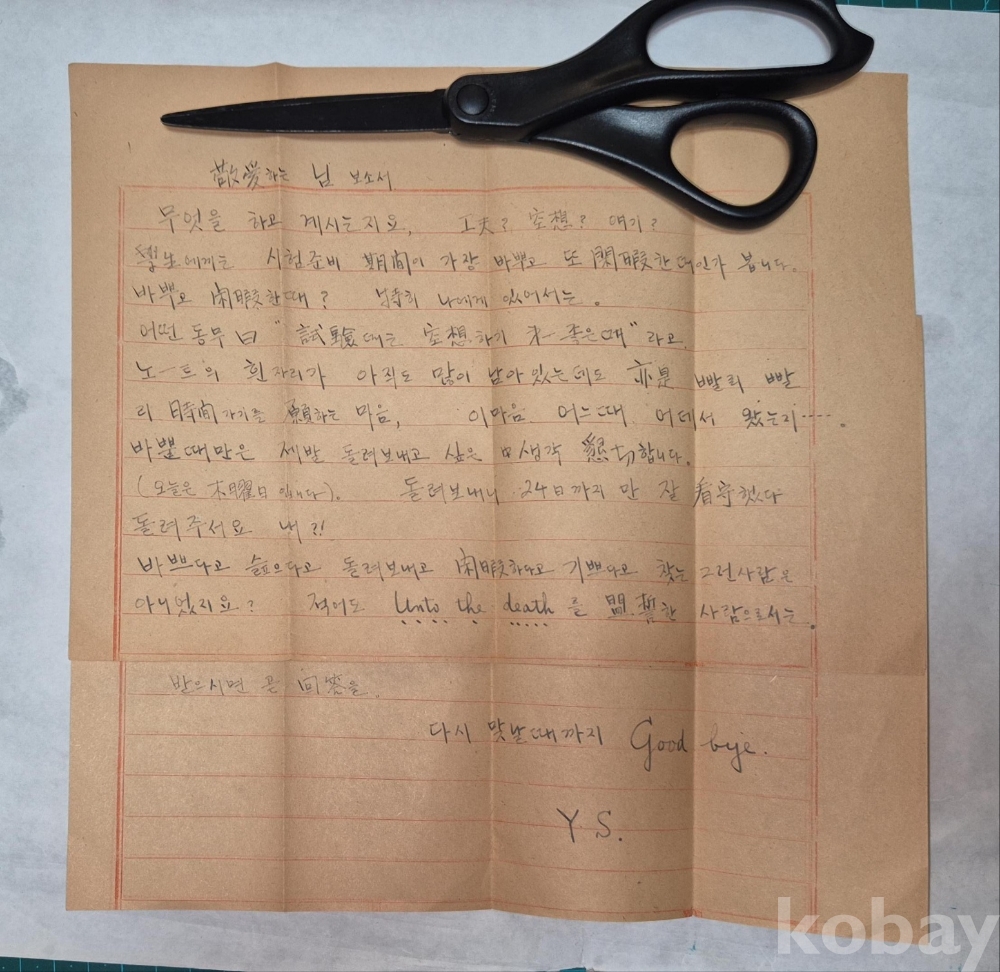 敬愛하는 님 보소서
무엇을 하고 계시는지요, 工夫? 空想? 얘기?
學生에게는 시험준비 期間이 가장 바쁘고 또 閑暇한때인가 봅니다.
바쁘고 閑暇한때? 特히 나에게 있어서는.
어떤 동무 曰 "試驗때는 空想하기 才一 좋은때"라고.
노-트의 흰자리가 아직도 많이 남아있는데도 亦是 빨리 빨
리 時間가기를 願하는 마음, 이마음 어느때 어데서 왔는지‥‥.
바쁠때만은 제발 돌려보내고 싶은 생각 懇切합니다.
(오늘은 木曜日입니다). 돌려보내니 24日까지 만 잘 看守했다
돌려주서요 네?!
바쁘다고 슬프다고 돌려보내고 閑暇하다고 기쁘다고 찾는 그런사람은
아니었지요? 적어도 Unto the death를 盟誓한 사람으로서는.
받으시면 곧 回答을.
다시 맞날때까지 Good bye.
Y S.
kobay